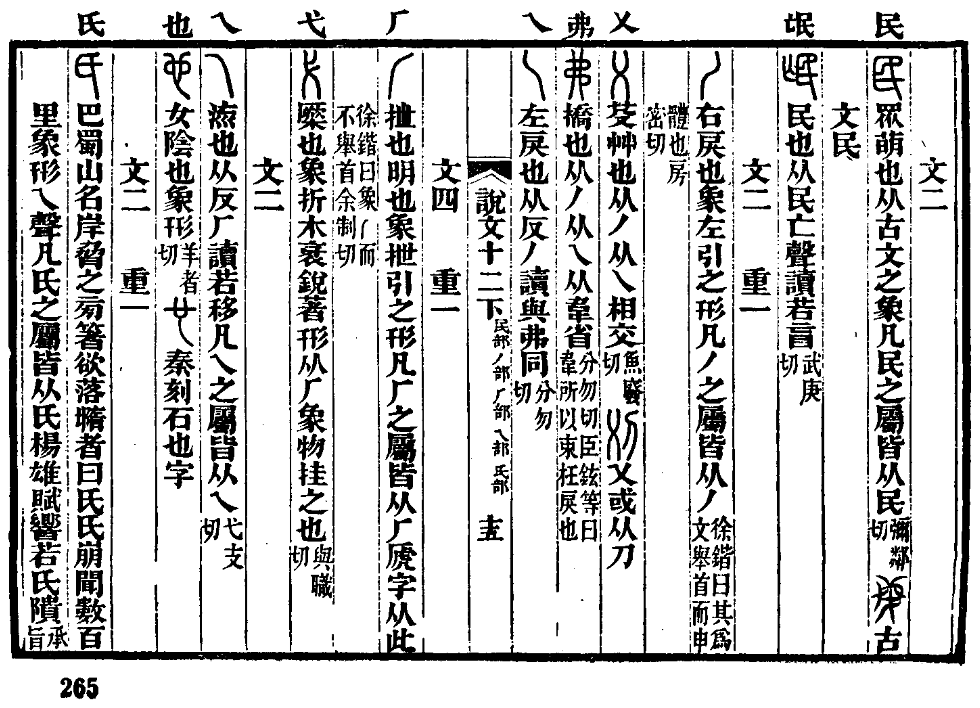 民 氓 乂 弗 乀 厂 弋 乁 也 氏
文二
民 眾萌也从古文之象凡民之屬皆从民彌鄰切 古
文民
氓 民也从民亡聲讀若盲武庚切
文二 重一
丿 右戾也象左引之形凡丿之屬皆从丿徐鍇曰其爲文舉首而申
體也房密切
乂 芟艸也从丿从乀相交魚廢切 刈 乂或从刀
弗 撟也从丿从乀从韋省分勿切臣鉉等曰韋所以束枉戾也
乀 左戾也从反丿讀與弗同分勿切
說文十二下 民部 丿部 厂部 乁部 氏部 十五
文四 重一
厂 抴也明也象抴引之形凡厂之屬皆从厂虒字从此
徐鍇曰象丿而不舉首余制切
弋 橜也象折木衺銳著形从厂象物挂之也與職切
文二
乁 流也从反厂讀若移凡乁之屬皆从乁弋支切
也 女陰也象形羊者切 秦刻石也字
文二 重一
氏 巴蜀山名岸脅之旁箸欲落墮者曰氏氏崩聞數百
里象形乁聲凡氏之屬皆从氏楊雄賦響若氏隤承旨切
265